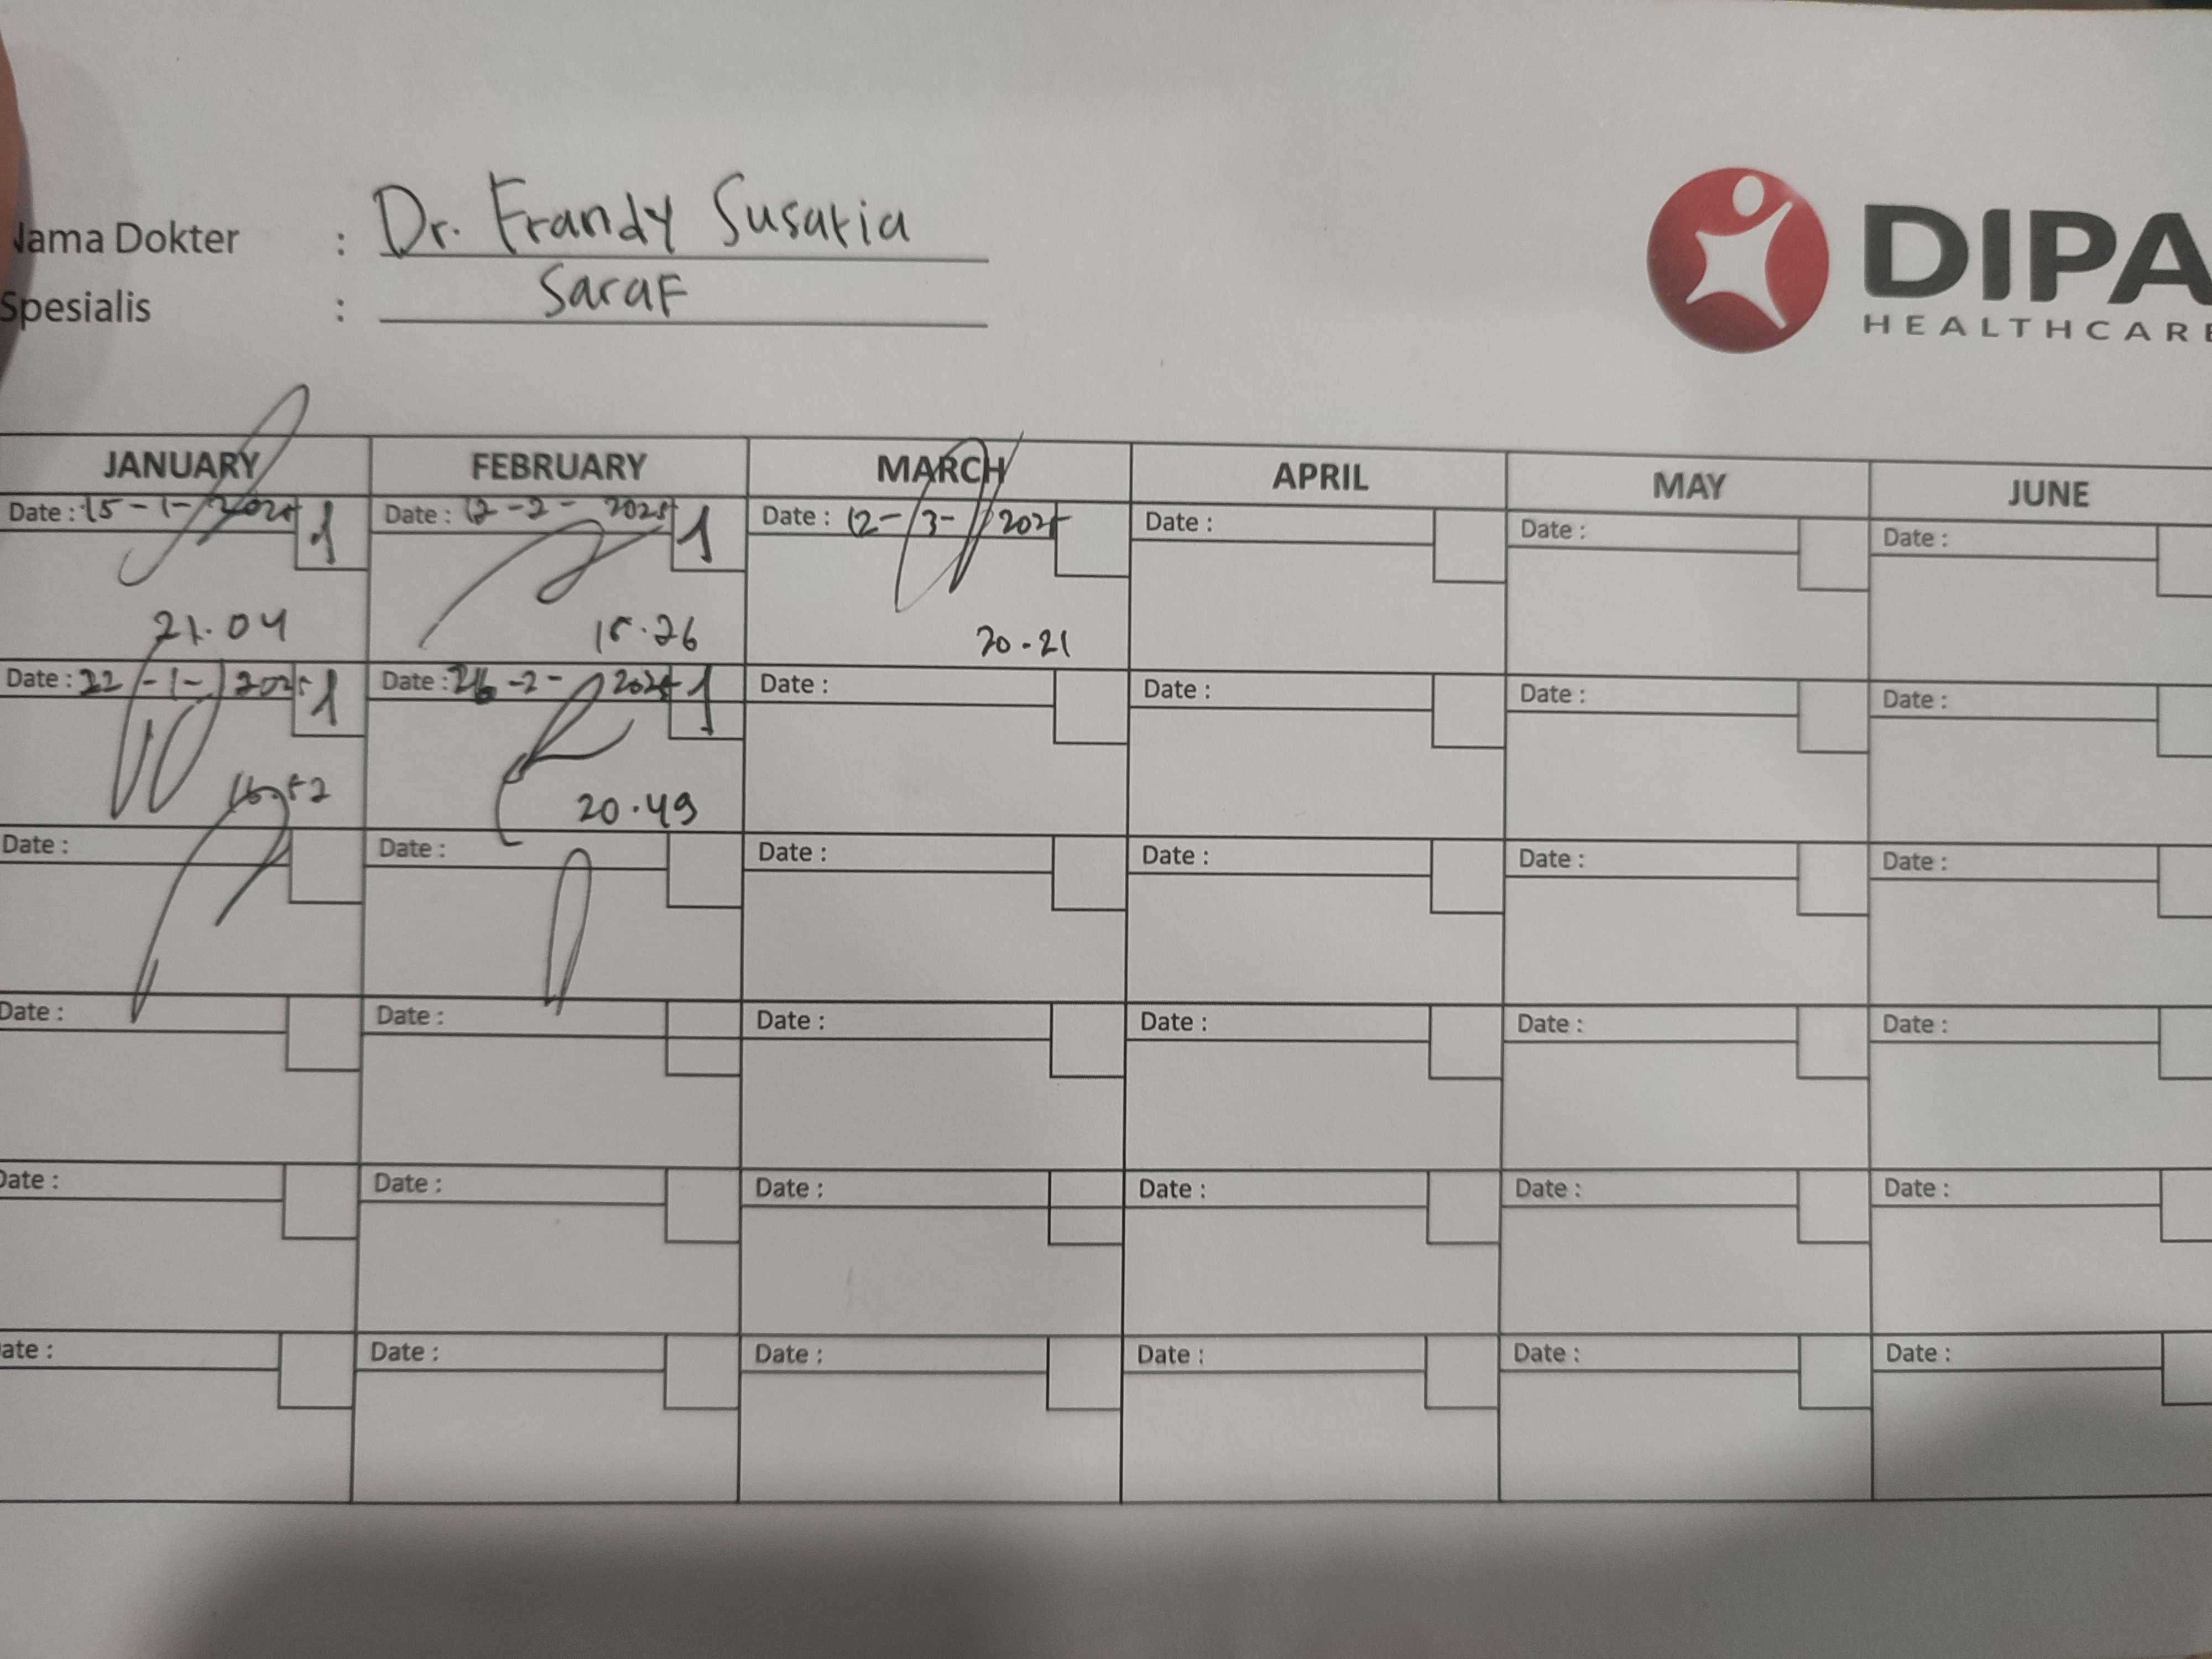 Nama Dokter : Dr. Frandy Susatia
Spesialis : Saraf
DIPA
HEALTHCARE
JANUARY FEBRUARY MARCH APRIL MAY JUNE
Date : 15-1-2025 1 Date : 12-2-2025 1 Date : 12-3-2025 Date : Date : Date :
21.04 20.21
Date : 22-1-2025 1 Date : 26-2-2025 1 Date : Date : Date : Date :
20.49
Date : Date : Date : Date : Date : Date :
Date : Date : Date : Date : Date : Date :
Date : Date : Date : Date : Date : Date :
Date : Date : Date : Date : Date : Date :